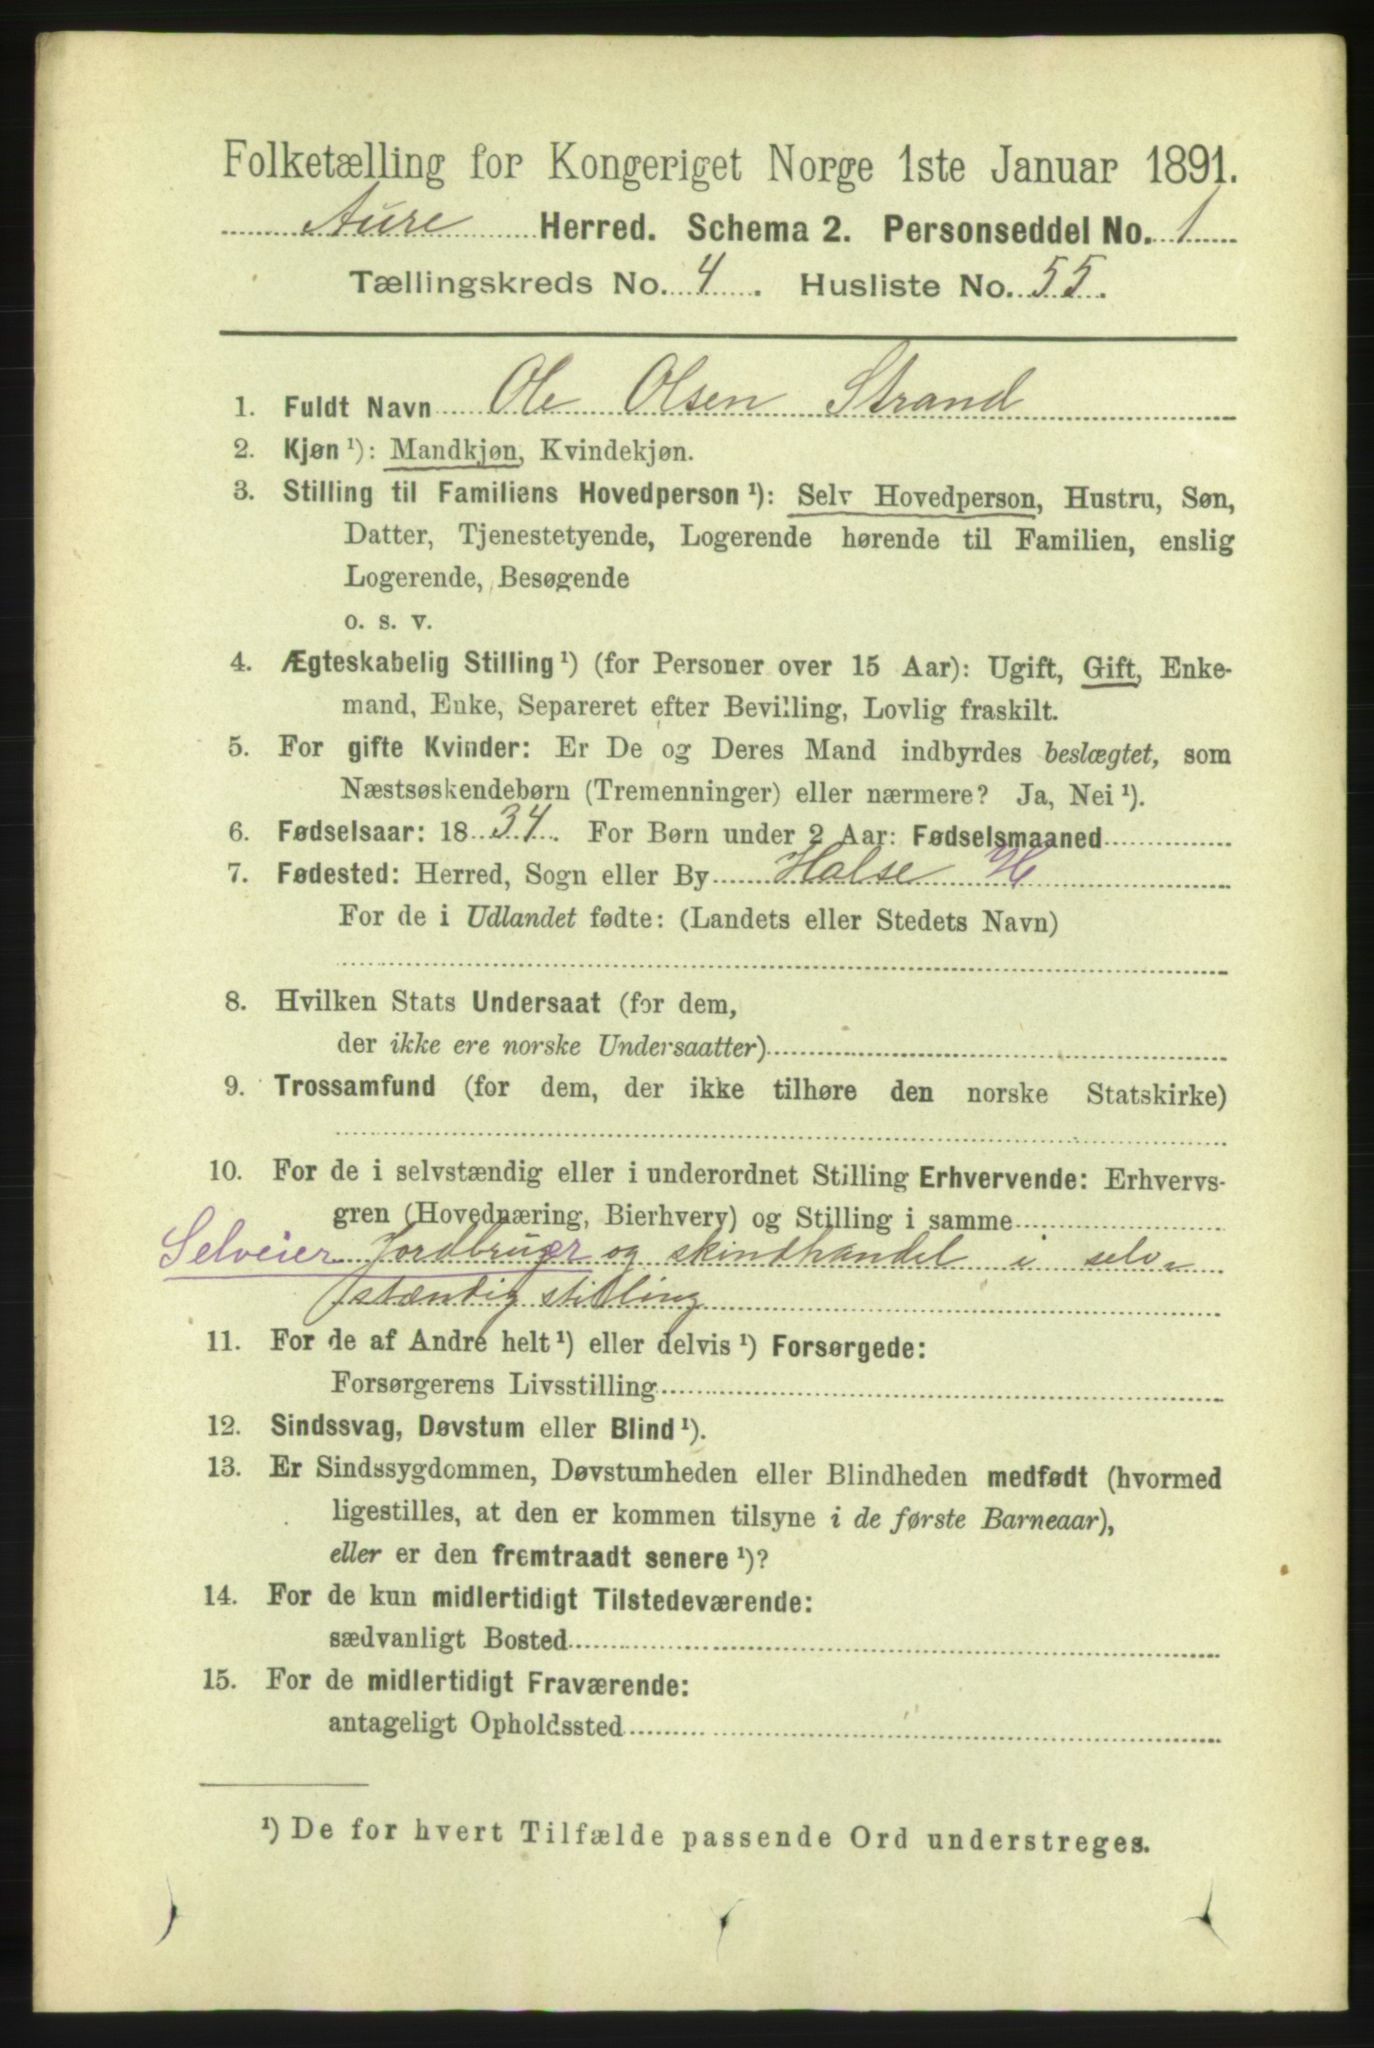 Folketælling for Kongeriget Norge 1ste Januar 1891.
Aure Herred. Schema 2. Personseddel No. 1
Tællingskreds No. 4. Husliste No. 55.
1. Fuldt Navn Ole Olsen Strand
2. Kjøn ¹): Mandkjøn, Kvindekjøn.
3. Stilling til Familiens Hovedperson ¹): Selv Hovedperson, Hustru, Søn,
Datter, Tjenestetyende, Logerende hørende til Familien, enslig
Logerende, Besøgende
o. s. v.
4. Ægteskabelig Stilling ¹) (for Personer over 15 Aar): Ugift, Gift, Enke-
mand, Enke, Separeret efter Bevilling, Lovlig fraskilt.
5. For gifte Kvinder: Er De og Deres Mand indbyrdes beslægtet, som
Næstsøskendebørn (Tremenninger) eller nærmere? Ja, Nei ¹).
6. Fødselsaar: 1834. For Børn under 2 Aar: Fødselsmaaned
7. Fødested: Herred, Sogn eller By Halse H
For de i Udlandet fødte: (Landets eller Stedets Navn)
8. Hvilken Stats Undersaat (for dem,
der ikke ere norske Undersaatter)
9. Trossamfund (for dem, der ikke tilhøre den norske Statskirke)
10. For de i selvstændig eller i underordnet Stilling Erhvervende: Erhvervs-
gren (Hovednæring, Bierhverv) og Stilling i samme
Selveier Jordbruger og skindhandel i selv-
stændig stilling
11. For de af Andre helt ¹) eller delvis ¹) Forsørgede:
Forsørgerens Livsstilling
12. Sindssvag, Døvstum eller Blind ¹).
13. Er Sindssygdommen, Døvstumheden eller Blindheden medfødt (hvormed
ligestilles, at den er kommen tilsyne i de første Barneaar),
eller er den fremtraadt senere ¹)?
14. For de kun midlertidigt Tilstedeværende:
sædvanligt Bosted
15. For de midlertidigt Fraværende:
antageligt Opholdssted
¹) De for hvert Tilfælde passende Ord understreges.